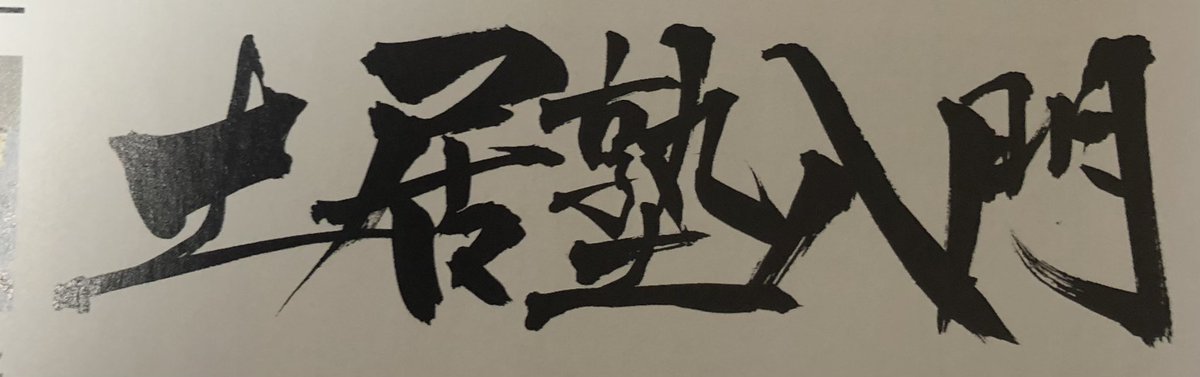 土居塾入門